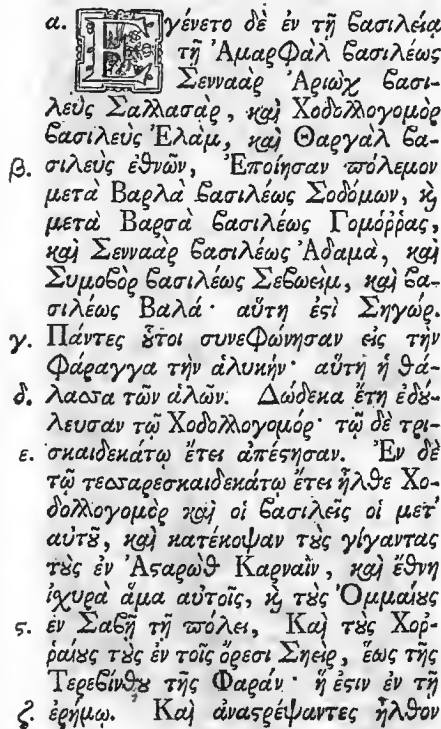 α. Ἐγένετο δὲ ἐν τῇ βασιλείᾳ
τῇ Ἀμαρφὰλ βασιλέως
Σενναὰρ Ἀριὼχ βασι-
λεὺς Σαλλασὰρ, καὶ Χοδολλογομὸρ
βασιλεὺς Ἐλὰμ, καὶ Θαργὰλ βα-
β. σιλεὺς ἐθνῶν, Ἐποίησαν πόλεμον
μετὰ Βαρλὰ βασιλέως Σοδόμων, καὶ
μετὰ Βαρσὰ βασιλέως Γομόῤῥας,
καὶ Σενναὰρ βασιλέως Ἀδαμὰ, καὶ
Συμοβὸρ βασιλέως Σεβωεὶμ, καὶ βα-
σιλέως Βαλά· αὕτη ἐστὶ Σηγώρ.
γ. Πάντες οὗτοι συνεφώνησαν εἰς τὴν
φάραγγα τὴν ἁλυκήν· αὕτη ἡ θά-
δ. λασσα τῶν ἁλῶν. Δώδεκα ἔτη ἐδού-
λευσαν τῷ Χοδολλογομόρ· τῷ δὲ τρι-
ε. σκαιδεκάτῳ ἔτει ἀπέστησαν. Ἐν δὲ
τῷ τεσσαρεσκαιδεκάτῳ ἔτει ἦλθε Χο-
δολλογομὸρ καὶ οἱ βασιλεῖς οἱ μετ
αὐτοῦ, καὶ κατέκοψαν τοὺς γίγαντας
τοὺς ἐν Ἀσταρὼθ Καρναῒν, καὶ ἔθνη
ἰχυρὰ ἅμα αὐτοῖς, καὶ τοὺς Ὀμμαίους
ς. ἐν Σαβῇ τῇ πόλει, Καὶ τοὺς Χοῤ-
ῥαίους τοὺς ἐν τοῖς ὄρεσι Σηεὶρ, ἕως τῆς
Τερεβίνθου τῆς Φαράν· ἥ ἐστιν ἐν τῇ
ζ. ἐρήμῳ. Καὶ ἀναστρέψαντες ἦλθον